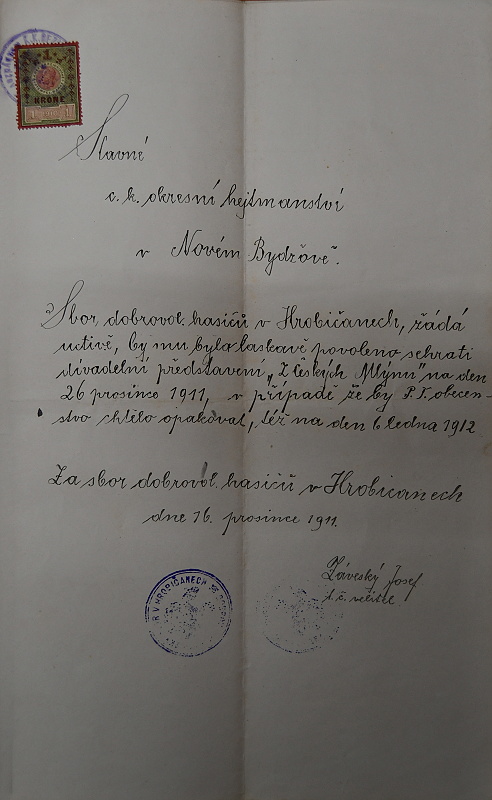 KRONE
Slavné
c. k. okresní hejtmanství
v Novém Bydžově.
Sbor dobrovol. hasičů v Hrobičanech, žádá
uctivě, by mu bylo laskavě povoleno sehrati
divadelní představení „Z Českých Mlýnů" na den
26 prosince 1911, v případě že by P. T. obecen-
stvo chtělo opakovat, též na den 6 ledna 1912
Za sbor dobrovol. hasičů v Hrobicanech
dne 16. prosince 1911.
Záveský Josef
t. č. velitel.
V HROBIČANECH